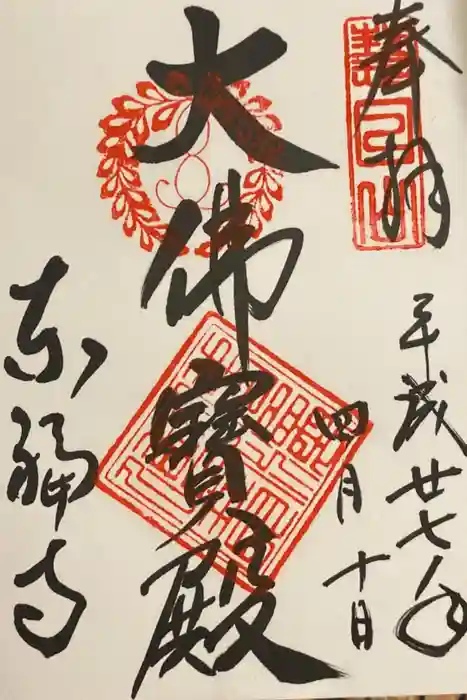 奉拝
慧日山
平成廿七年
四月十日
大佛寶殿
東福寺